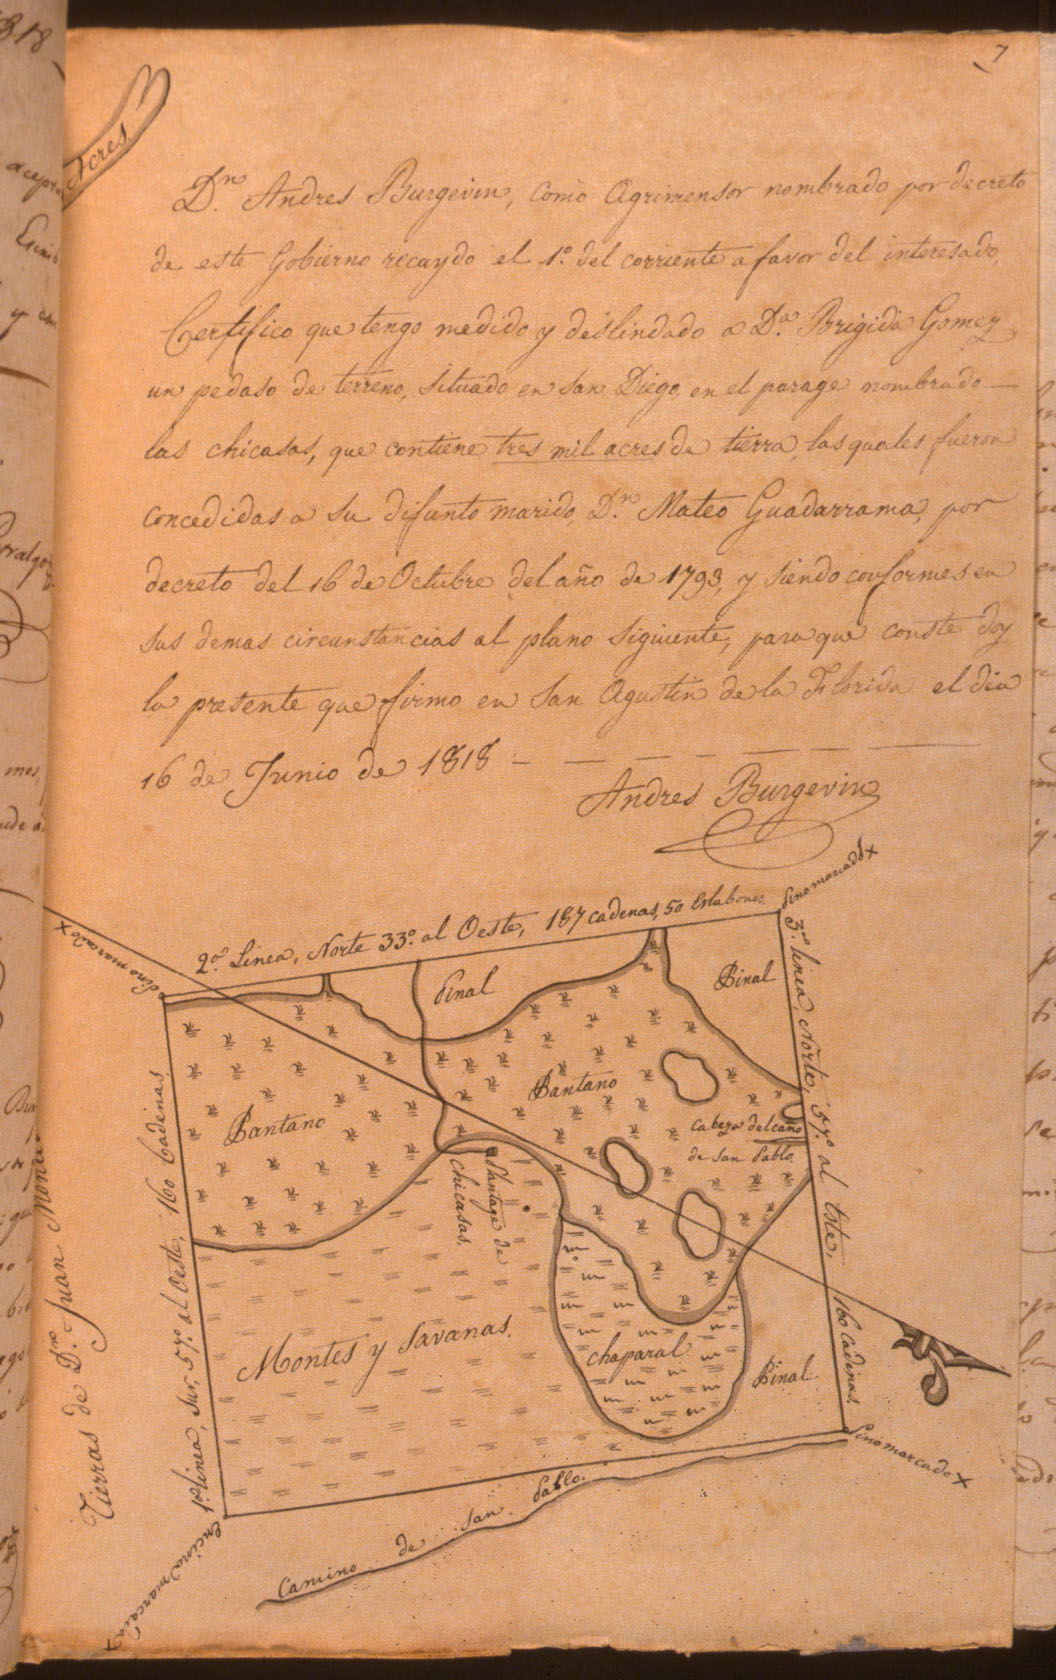 7
Acres.
Dn. Andres Burgevin, como Agrimensor nombrado por decreto
de este Gobierno recaydo el 1o. del corriente a favor del interesado,
Certifico que tengo medido y deslindado a Da. Brigida Gomez
un pedaso de terreno, situado en San Diego, en el parage nombrado
las chicasas, que contiene tres mil acres de tierra, las quales fueron
concedidas a su difunto marido, Dn. Mateo Guadarrama, por
decreto del 16 de Octubre del año de 1793, y siendo conformes en
sus demas circunstancias al plano siguiente, para que conste doy
la presente que firmo en San Agustin de la Florida el dia
16 de Junio de 1818
Andres Burgevin
Pino marcado X
Pino marcado X
2a. Linea, Norte 33o. al Oeste, 187 cadenas, 50 Eslabones
Pinal
Pinal
3a. linea, Norte, 57o. al Este, 160 Cadenas.
Pantano
Pantano
Cabeza del caño
de San Pablo.
Pantage de
Chicasas.
1a. linea, Sur, 57o. al Oeste, 160 Cadenas
Tierras de Dn. Juan
Montes y Savanas.
Chaparal
Pinal
Pino marcado X
Encina marcada
Camino de San Pablo.